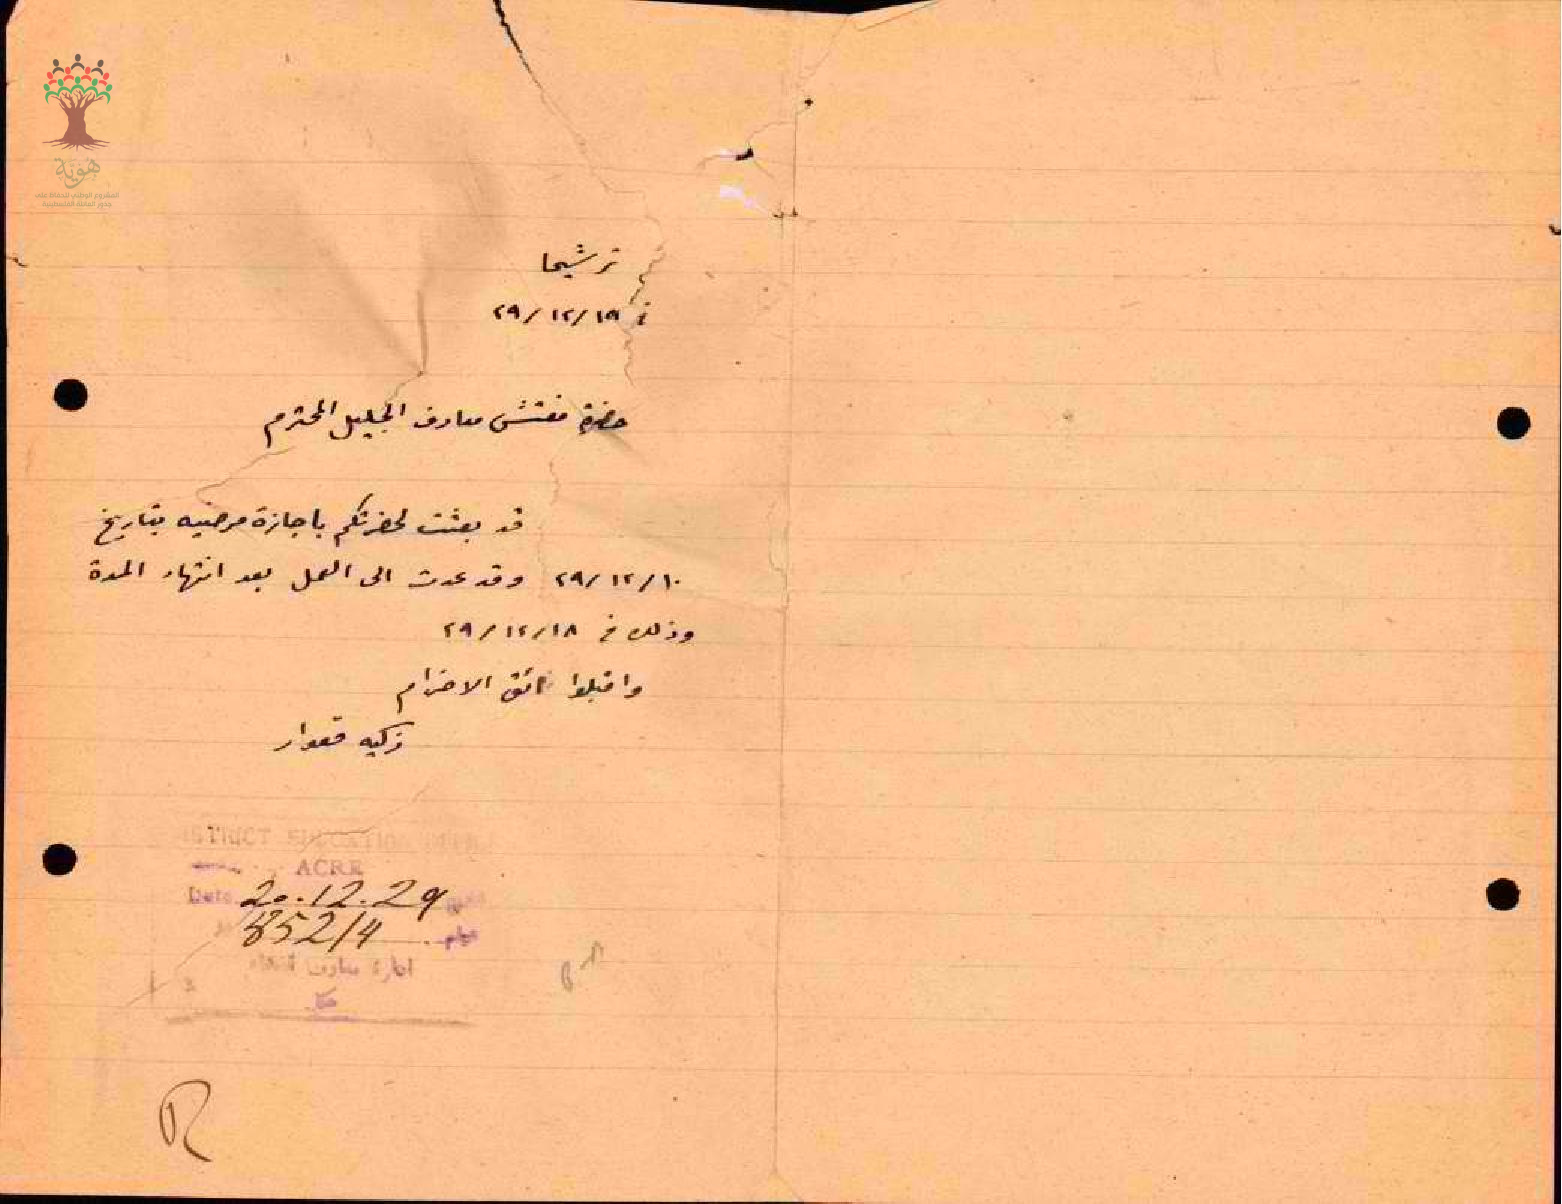 هوية
المشروع الوطني للحفاظ على
جذور العائلة الفلسطينية
ترشيحا
في ١٩/١٢/٢٩
حضرة مفتش معارف الجليل المحترم
قد بعثت لحضرتكم باجازة مرضيه بتاريخ
١٠/١٢/٢٩ وقد عدت الى العمل بعد انتهاء المدة
وذلك في ١٨/١٢/٢٩
واقبلوا فائق الاحترام
زكيه قعوار
ISTRICT EDUCATION
ACRE
Date 20.12.29
852/4
ادارة معارف قضاء
عكا
R